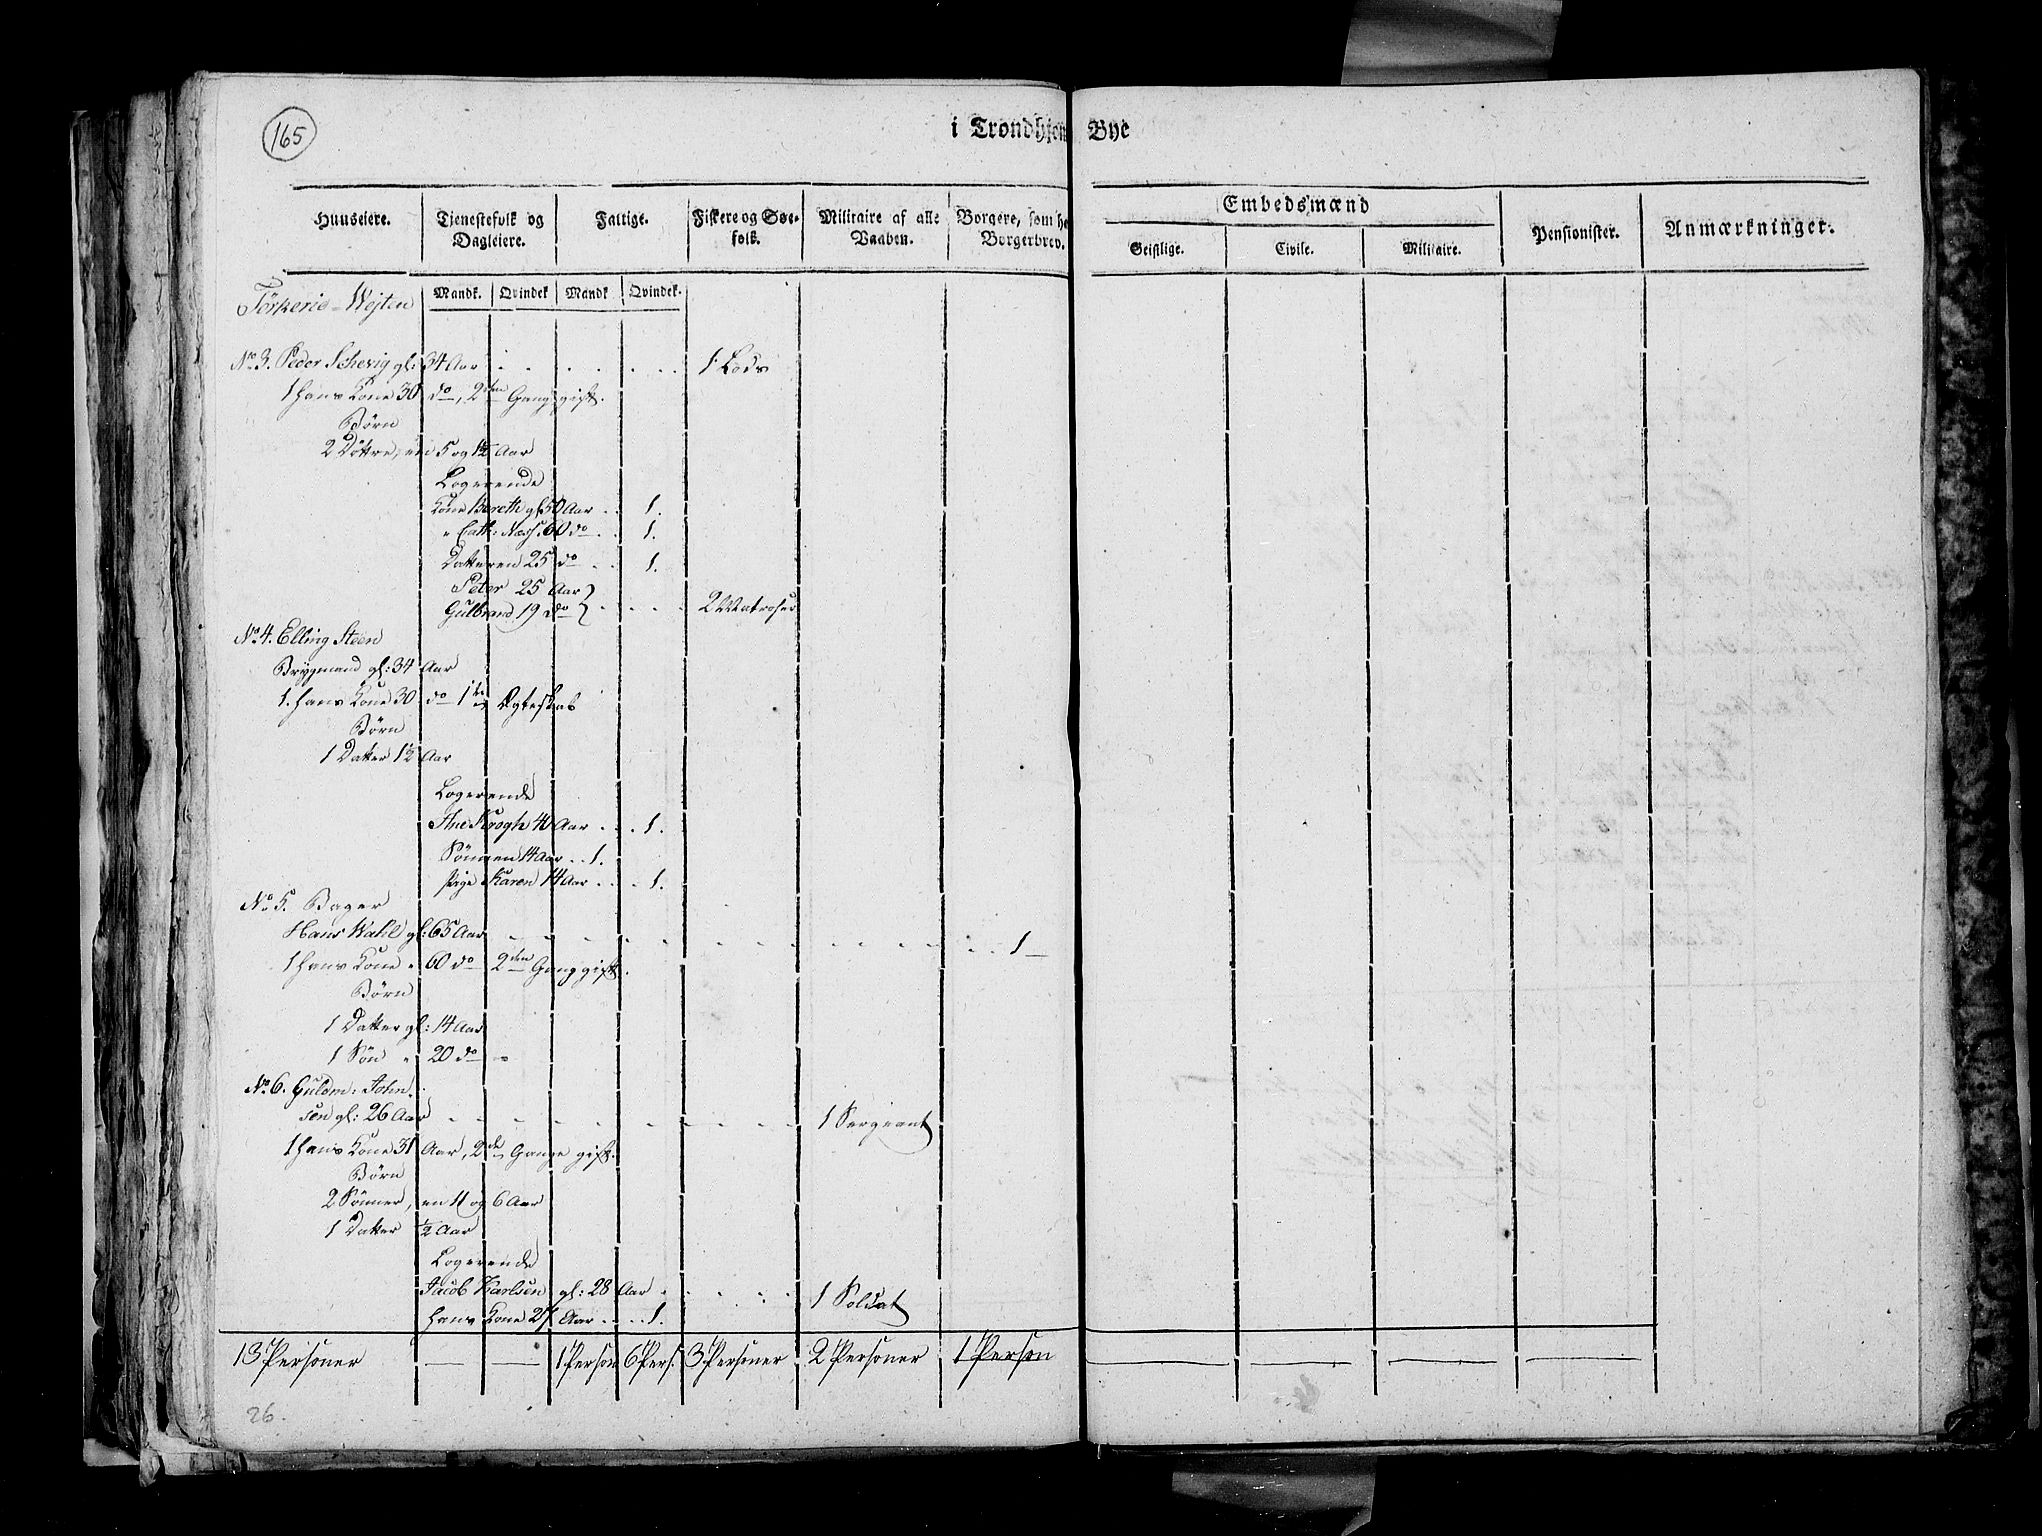 165
i Trondhjem Bye
Huuseiere. Tjenestefolk og Dagleiere. Fattige. Fiskere og Søefolk. Militaire af alle Vaaben. Borgere, som ha Borgerbrev. Embedsmænd Pensionister. Anmærkninger.
Geistlige. Civile. Militaire.
Mandk. Qvindek Mandk Qvindek.
Wejten
No 3. Peder Schevig gl: 34 Aar . . . . . . 1 Lods
1 hans Kone 30 do, 2den Gang gift.
Børn
2 Døttre, en 5 og 1½ Aar
Logerende
Kone Bereth gl 50 Aar . . 1.
" Cath: Næss. 60 do . . 1.
Datteren 25 do . . 1.
Peter 25 Aar }
Gulbrand 19 do } . . . . 2 Matroser
No 4. Elling Steen
Brygmand gl: 34 Aar
1. hans Kone 30 do 1te Ægteskab
Børn
1 Datter 1½ Aar
Logerende
Ane Krogh 40 Aar . . . 1.
Sønnen 14 Aar . . 1.
pige Karen 14 Aar . . . 1.
No 5. Bager
Hans Wahl gl: 65 Aar . . . . . . . . 1 —
1 hans Kone " 60 do 2den Gang gift.
Børn
1 Datter gl: 14 Aar
1 Søn " 20 do
No 6. Guldm: John-
sen gl: 26 Aar . . . . . . . 1 Sergeant
1 hans Kone 31 Aar, 2de Gange gift.
Børn
2 Sønner, en 11 og 6 Aar
1 Datter ½ Aar
Logerende
Jacob Karlsen gl: 28 Aar . . . . . 1 Soldat
hans Kone 27 Aar . . . 1.
13 Personer — — 1 Person 6 Pers. 3 Personer 2 Personer 1 Person — — — —
26.